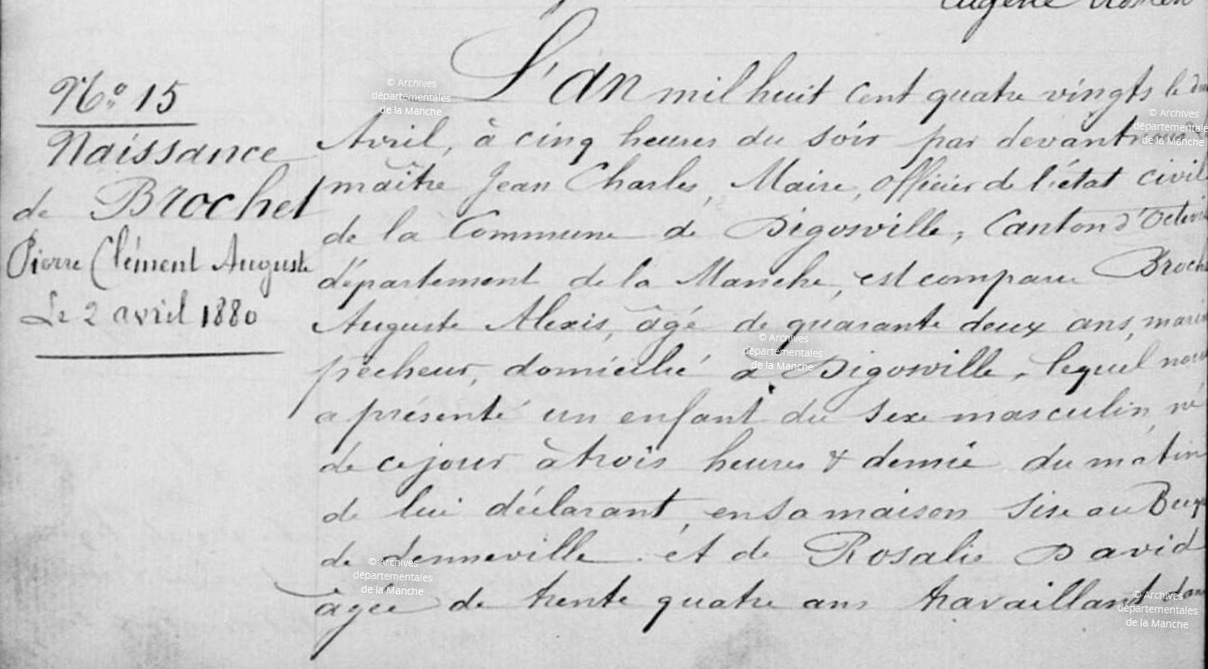 Eugène
Nº 15
Naissance
de Brochet
Pierre Clément Auguste
Le 2 avril 1880
L'an mil huit cent quatre vingts le
Avril, à cinq heures du soir par devant
maître Jean Charles, Maire, officier de l'état civil
de la Commune de Digosville, Canton d'Octevil
département de la Manche, est comparu Broch
Auguste Alexis, âgé de quarante deux ans, marin
pêcheur, domicilié à Digosville, lequel nous
a présenté un enfant du sexe masculin, né
de ce jour à trois heures & demie du matin
de lui déclarant, en sa maison sise au
de denneville et de Rosalie David
âgée de trente quatre ans travaillant
© Archives
départementales
de la Manche
© Archives
départementales
de la Manche
© Archives
départementales
de la Manche
© Archives
départementales
de la Manche
© Archives
départementales
de la Manche